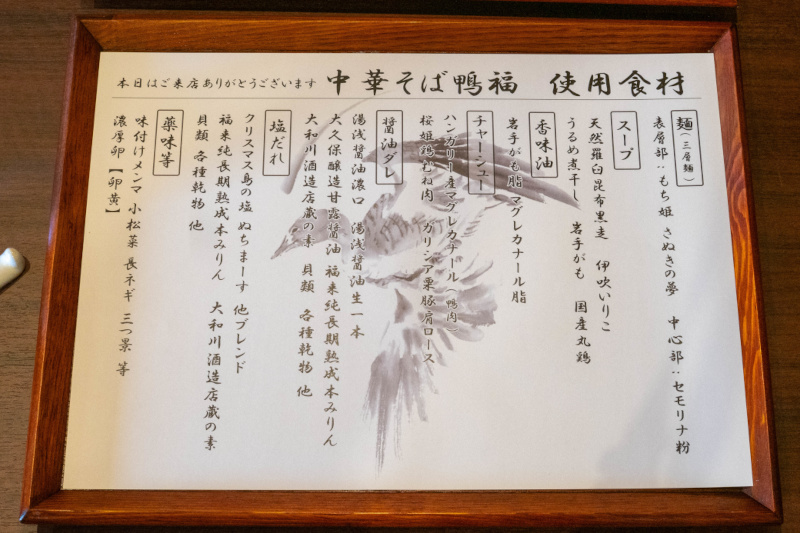 本日はご来店ありがとうございます 中華そば鴨福 使用食材
麺(三層麺)
表層部:もち姫 さぬきの夢 中心部:セモリナ粉
スープ
天然羅臼昆布黒走 伊吹いりこ
うるめ煮干し、岩手がも 国産丸鶏
香味油
岩手がも脂 マグレカナール脂
チャーシュー
ハンガリー産マグレカナール(鴨肉)
桜姫鶏むね肉 ガリシア栗豚肩ロース
醤油ダレ
湯浅醤油濃口 湯浅醤油生一本
大久保醸造甘露醤油 福来純長期熟成本みりん
大和川酒造店蔵の素 貝類 各種乾物 他
塩だれ
クリスマス島の塩 ぬちまーす 他ブレンド
福来純長期熟成本みりん 大和川酒造店蔵の素
貝類 各種乾物 他
薬味等
味付けメンマ 小松菜 長ネギ 三つ景 等
濃厚卵【卵黄】